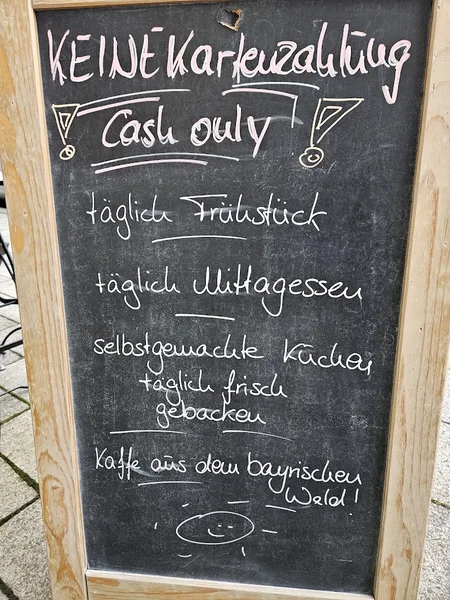 KEINE Kartenzahlung
! Cash only !
täglich Frühstück
täglich Mittagessen
selbstgemachte Kuchen
täglich frisch
gebacken
Kaffe aus dem bayrischen
Wald!